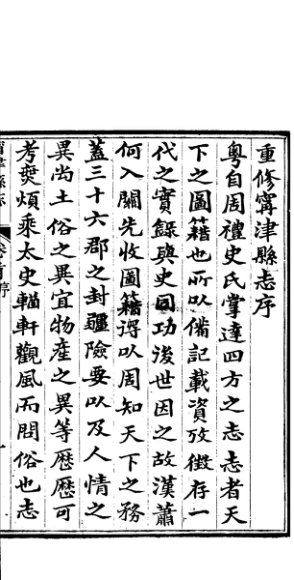 重修寗津縣志序
粵自周禮史氏掌達四方之志志者天
下之圖籍也所以備記載資攷徵存一
代之實錄與史同功後世因之故漢蕭
何入關先收圖籍得以周知天下之務
蓋三十六郡之封疆險要以及人情之
異尚土俗之異宜物產之異等歷歷可
考奭煩乘太史輶軒觀風而問俗也志